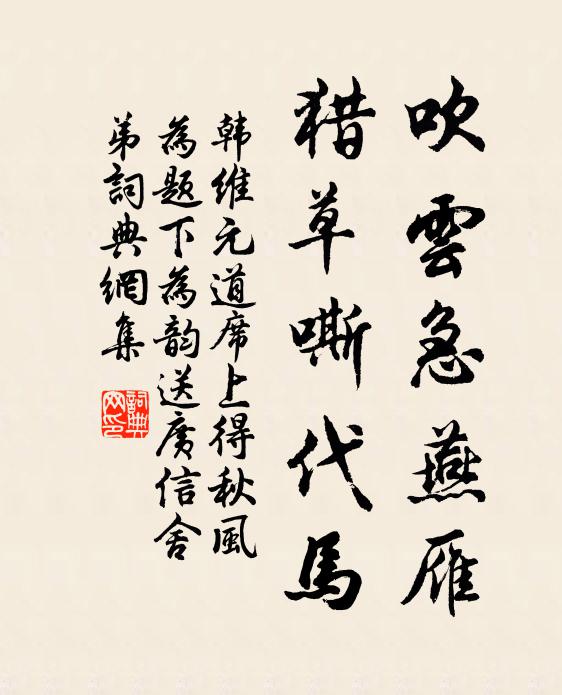 吹雲急燕雁
猎草嘶代馬
韩維元道席上得秋風
為题下為韵送廣信舍
弟詞典網集
詞典
网印